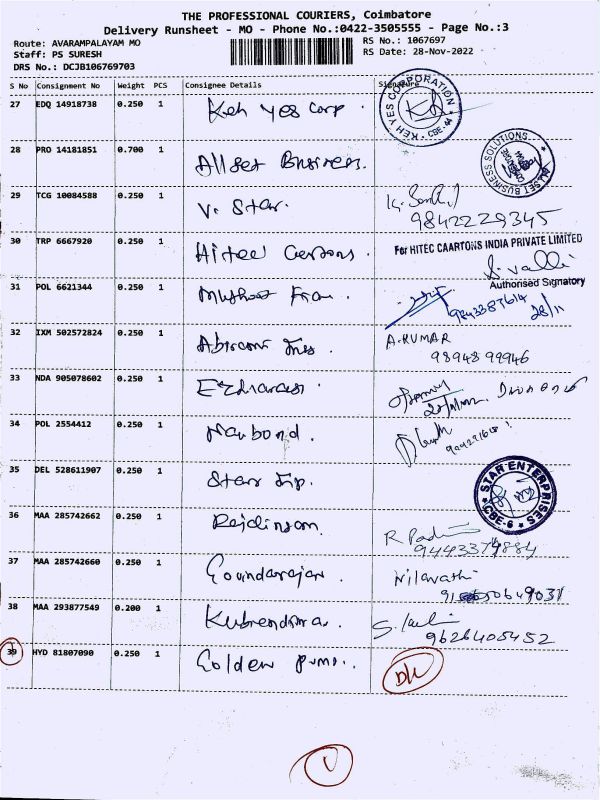 THE PROFESSIONAL COURIERS, Coimbatore
Delivery Runsheet - MO - Phone No.:0422-3505555 - Page No.:3
Route: AVARAMPALAYAM MO
RS No.: 1067697
Staff: PS SURESH
RS Date: 28-Nov-2022
DRS No.: DCJB106769703
S No Consignment No Weight PCS Consignee Details Signature
27 EDQ 14918738 0.250 1 Keh Yes Corp.
KEH YES CORPORATION * CBE-44 *
28 PRO 14181851 0.700 1 Allset Business.
ALLSET BUSINESS SOLUTIONS
29 TCG 10084588 0.250 1 V. Star.
9842229345
30 TRP 6667920 0.250 1 Hitec Cartons.
For HITEC CAARTONS INDIA PRIVATE LIMITED
S. Valli
Authorised Signatory
31 POL 6621344 0.250 1 Muthoot Fran.
9843387614
28/11
32 IXM 502572824 0.250 1
A. KUMAR
98948 99946
33 NDA 905078602 0.250 1
34 POL 2554412 0.250 1
35 DEL 528611907 0.250 1 Star
STAR ENTERPRISES * CBE-6 *
36 MAA 285742662 0.250 1
R
9443379884
37 MAA 285742660 0.250 1 Govindarajan.
Nilavathi
38 MAA 293877549 0.200 1
9626405452
39 HYD 81807090 0.250 1 Golden Pump..